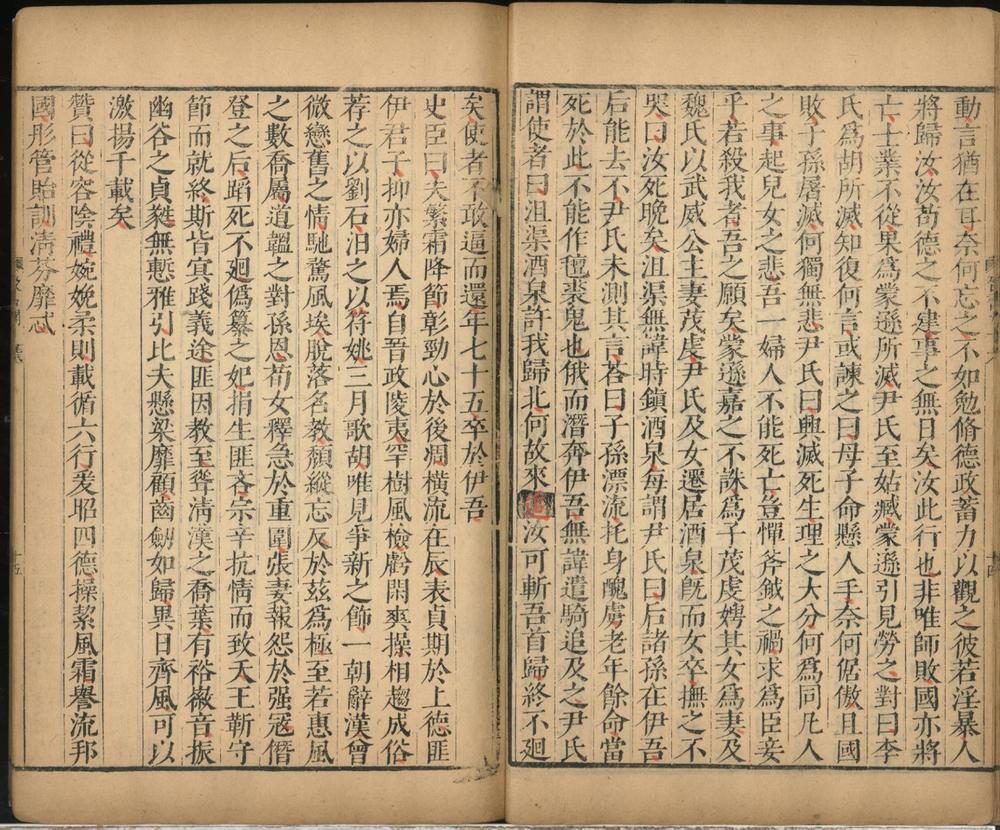 動言猶在耳奈何忘之不如勉脩德政蓄力以觀之彼若淫暴人
將歸汝汝苟德之不建事之無日矣汝此行也非唯師敗國亦將
亡士業不從果爲蒙遜所滅尹氏至姑臧蒙遜引見勞之對曰李
氏爲胡所滅知復何言或諫之曰母子命懸人手奈何倨傲且國
敗子孫屠滅何獨無悲尹氏曰興滅死生理之大分何爲同凡人
之事起兒女之悲吾一婦人不能死亡豈憚斧鉞之禍求爲臣妾
乎若殺我者吾之願矣蒙遜嘉之不誅爲子茂虔娉其女爲妻及
魏氏以武威公主妻茂虔尹氏及女遷居酒泉旣而女卒撫之不
哭曰汝死晚矣沮渠無諱時鎮酒泉每謂尹氏曰后諸孫在伊吾
后能去不尹氏未測其言荅曰子孫漂流托身醜虜老年餘命當
死於此不能作氊裘鬼也俄而潛奔伊吾無諱遣騎追及之尹氏
謂使者曰沮渠酒泉許我歸北何故來汝可斬吾首歸終不廻
矣使者不敢逼而還年七十五卒於伊吾
史臣曰夫繁霜降節彰勁心於後凋橫流在辰表貞期於上德匪
伊君子抑亦婦人焉自晉政陵夷罕樹風檢虧閑爽操相趨成俗
荐之以劉石汨之以符姚三月歌胡唯見爭新之飾一朝辭漢曾
微戀舊之情馳驚風埃脫落名教頹縱忘反於茲爲極至若惠風
之數喬屬道韞之對孫恩荀女釋急於重圍張妻報怨於强冦僭
登之后蹈死不廻僞纂之妃捐生匪吝宗辛抗情而致夭王靳守
節而就終斯皆冥踐義途匪因教至聳清漢之喬葉有裕徽音振
幽谷之貞蕤無慙雅引比夫懸梁靡顧齒劒如歸異日齊風可以
激揚千載矣
贊曰從容陰禮婉娩柔則載循六行爰昭四德操絜風霜譽流邦
國彤管貽訓清芬靡忒
十五